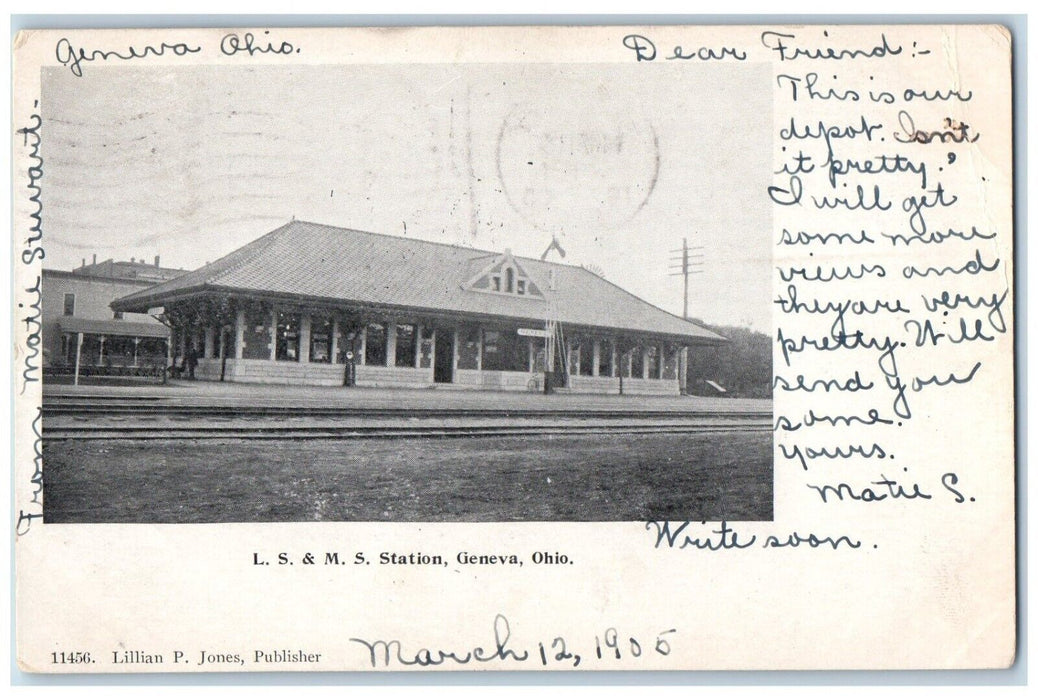 Geneva Ohio.
Dear Friend:-
This is our
depot. Isn't
it pretty?
I will get
some more
views and
they are very
pretty. Will
send you
some.
Yours.
Matie S.
Write soon.
From Matie Swart-
L. S. & M. S. Station, Geneva, Ohio.
11456. Lillian P. Jones, Publisher
March 12, 1905